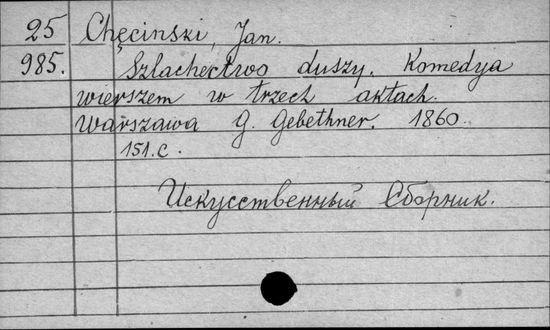 25 Chęcinski, Jan.
985. Szlachectwo duszy. Komedya
wierszem w trzech aktach.
Warszawa G. Gebethner. 1860.
151.c.
Искусственный Сборник.